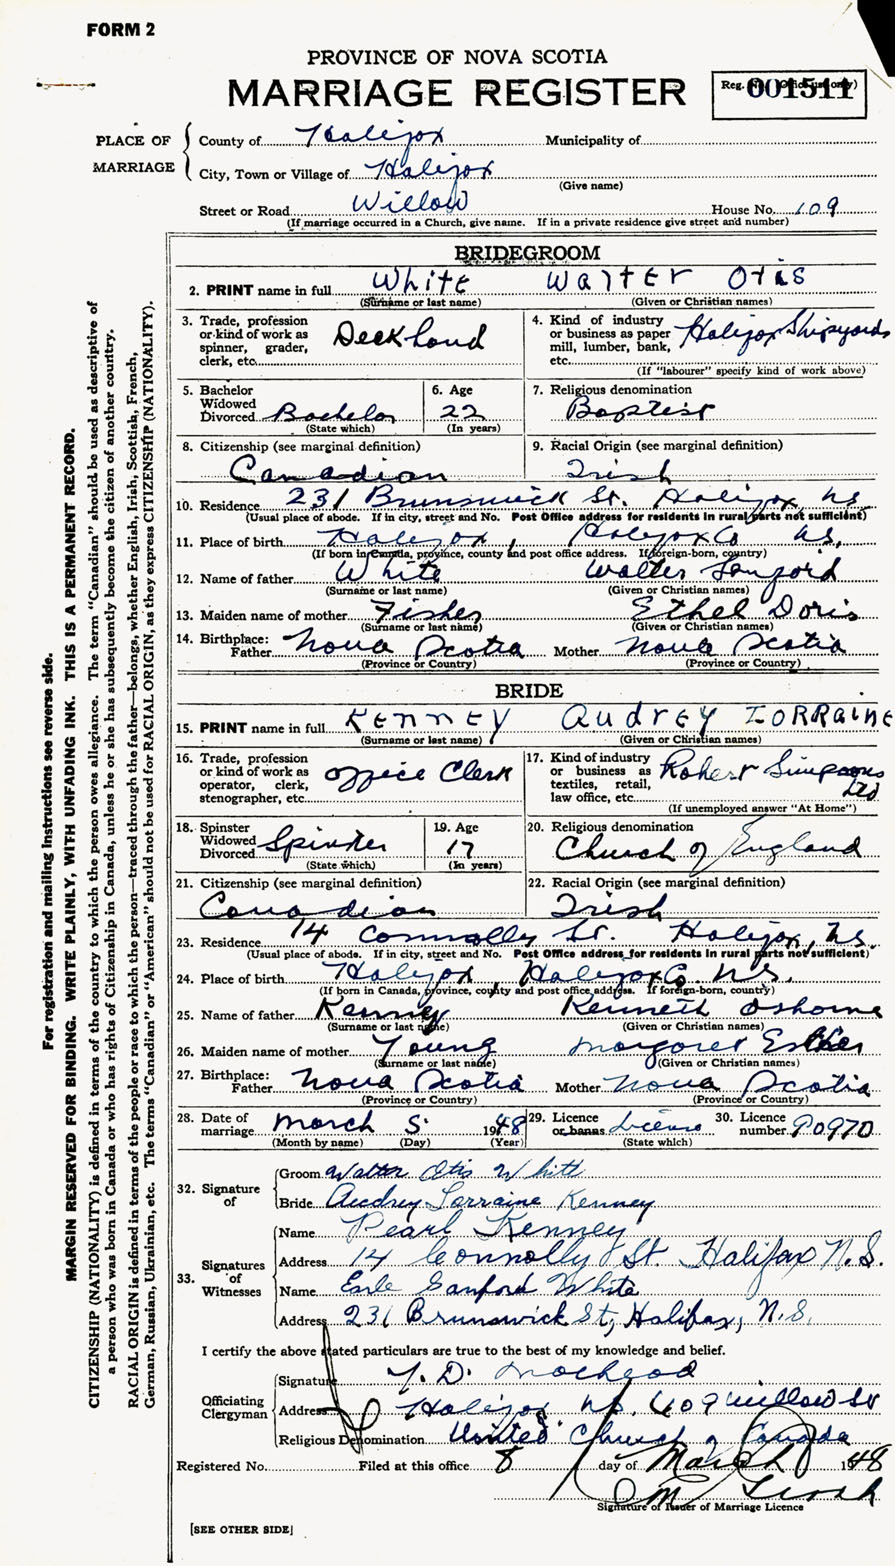 FORM 2
PROVINCE OF NOVA SCOTIA
MARRIAGE REGISTER
Reg. No. (Office use only) 001511
PLACE OF MARRIAGE
County of Halifax Municipality of
City, Town or Village of Halifax
(Give name)
Street or Road Willow House No. 109
(If marriage occurred in a Church, give name. If in a private residence give street and number)
BRIDEGROOM
2. PRINT name in full White Walter Otis
(Surname or last name) (Given or Christian names)
3. Trade, profession or kind of work as spinner, grader, clerk, etc. Deckhand
4. Kind of industry or business as paper mill, lumber, bank, etc. Halifax Shipyards
(If "labourer" specify kind of work above)
5. Bachelor Widowed Divorced Bachelor
(State which)
6. Age 22
(In years)
7. Religious denomination Baptist
8. Citizenship (see marginal definition) Canadian
9. Racial Origin (see marginal definition) Irish
10. Residence 231 Brunswick St. Halifax NS
(Usual place of abode. If in city, street and No. Post Office address for residents in rural parts not sufficient)
11. Place of birth Halifax, Halifax Co NS,
(If born in Canada, province, county and post office address. If foreign-born, country)
12. Name of father White Walter Sanford
(Surname or last name) (Given or Christian names)
13. Maiden name of mother Fisher Ethel Doris
(Surname or last name) (Given or Christian names)
14. Birthplace: Father Nova Scotia Mother Nova Scotia
(Province or Country) (Province or Country)
BRIDE
15. PRINT name in full KENNEY AUDREY LORRAINE
(Surname or last name) (Given or Christian names)
16. Trade, profession or kind of work as operator, clerk, stenographer, etc. Office Clerk
17. Kind of industry or business as textiles, retail, law office, etc. Robert Simpsons Ltd
(If unemployed answer "At Home")
18. Spinster Widowed Divorced Spinster
(State which)
19. Age 17
(In years)
20. Religious denomination Church of England
21. Citizenship (see marginal definition) Canadian
22. Racial Origin (see marginal definition) Irish
23. Residence 14 Connolly St. Halifax, NS.
(Usual place of abode. If in city, street and No. Post Office address for residents in rural parts not sufficient)
24. Place of birth Halifax Halifax Co. N.S.
(If born in Canada, province, county and post office address. If foreign-born, country)
25. Name of father Kenney Kenneth Osborne
(Surname or last name) (Given or Christian names)
26. Maiden name of mother Young Margaret Esther
(Surname or last name) (Given or Christian names)
27. Birthplace: Father Nova Scotia Mother Nova Scotia
(Province or Country) (Province or Country)
28. Date of marriage March 5. 1948
(Month by name) (Day) (Year)
29. Licence or banns License
(State which)
30. Licence number 90970
32. Signature of
Groom Walter Otis White
Bride Audrey Lorraine Kenney
33. Signatures of Witnesses
Name Pearl Kenney
Address 14 Connolly St. Halifax N.S.
Name Earle Sanford White
Address 231 Brunswick St, Halifax, N.S.
I certify the above stated particulars are true to the best of my knowledge and belief.
Officiating Clergyman
Signature D.
Address Halifax NS. 109 Willow St
Religious Denomination United Church of Canada
Registered No. Filed at this office 8 day of March 1948
Signature of Issuer of Marriage Licence
[SEE OTHER SIDE]
For registration and mailing instructions see reverse side.
MARGIN RESERVED FOR BINDING. WRITE PLAINLY, WITH UNFADING INK. THIS IS A PERMANENT RECORD.
CITIZENSHIP (NATIONALITY) is defined in terms of the country to which the person owes allegiance. The term "Canadian" should be used as descriptive of
a person who was born in Canada or who has rights of Citizenship in Canada, unless he or she has subsequently become the citizen of another country.
RACIAL ORIGIN is defined in terms of the people or race to which the person—traced through the father—belongs, whether English, Irish, Scottish, French,
German, Russian, Ukrainian, etc. The terms "Canadian" or "American" should not be used for RACIAL ORIGIN, as they express CITIZENSHIP (NATIONALITY).